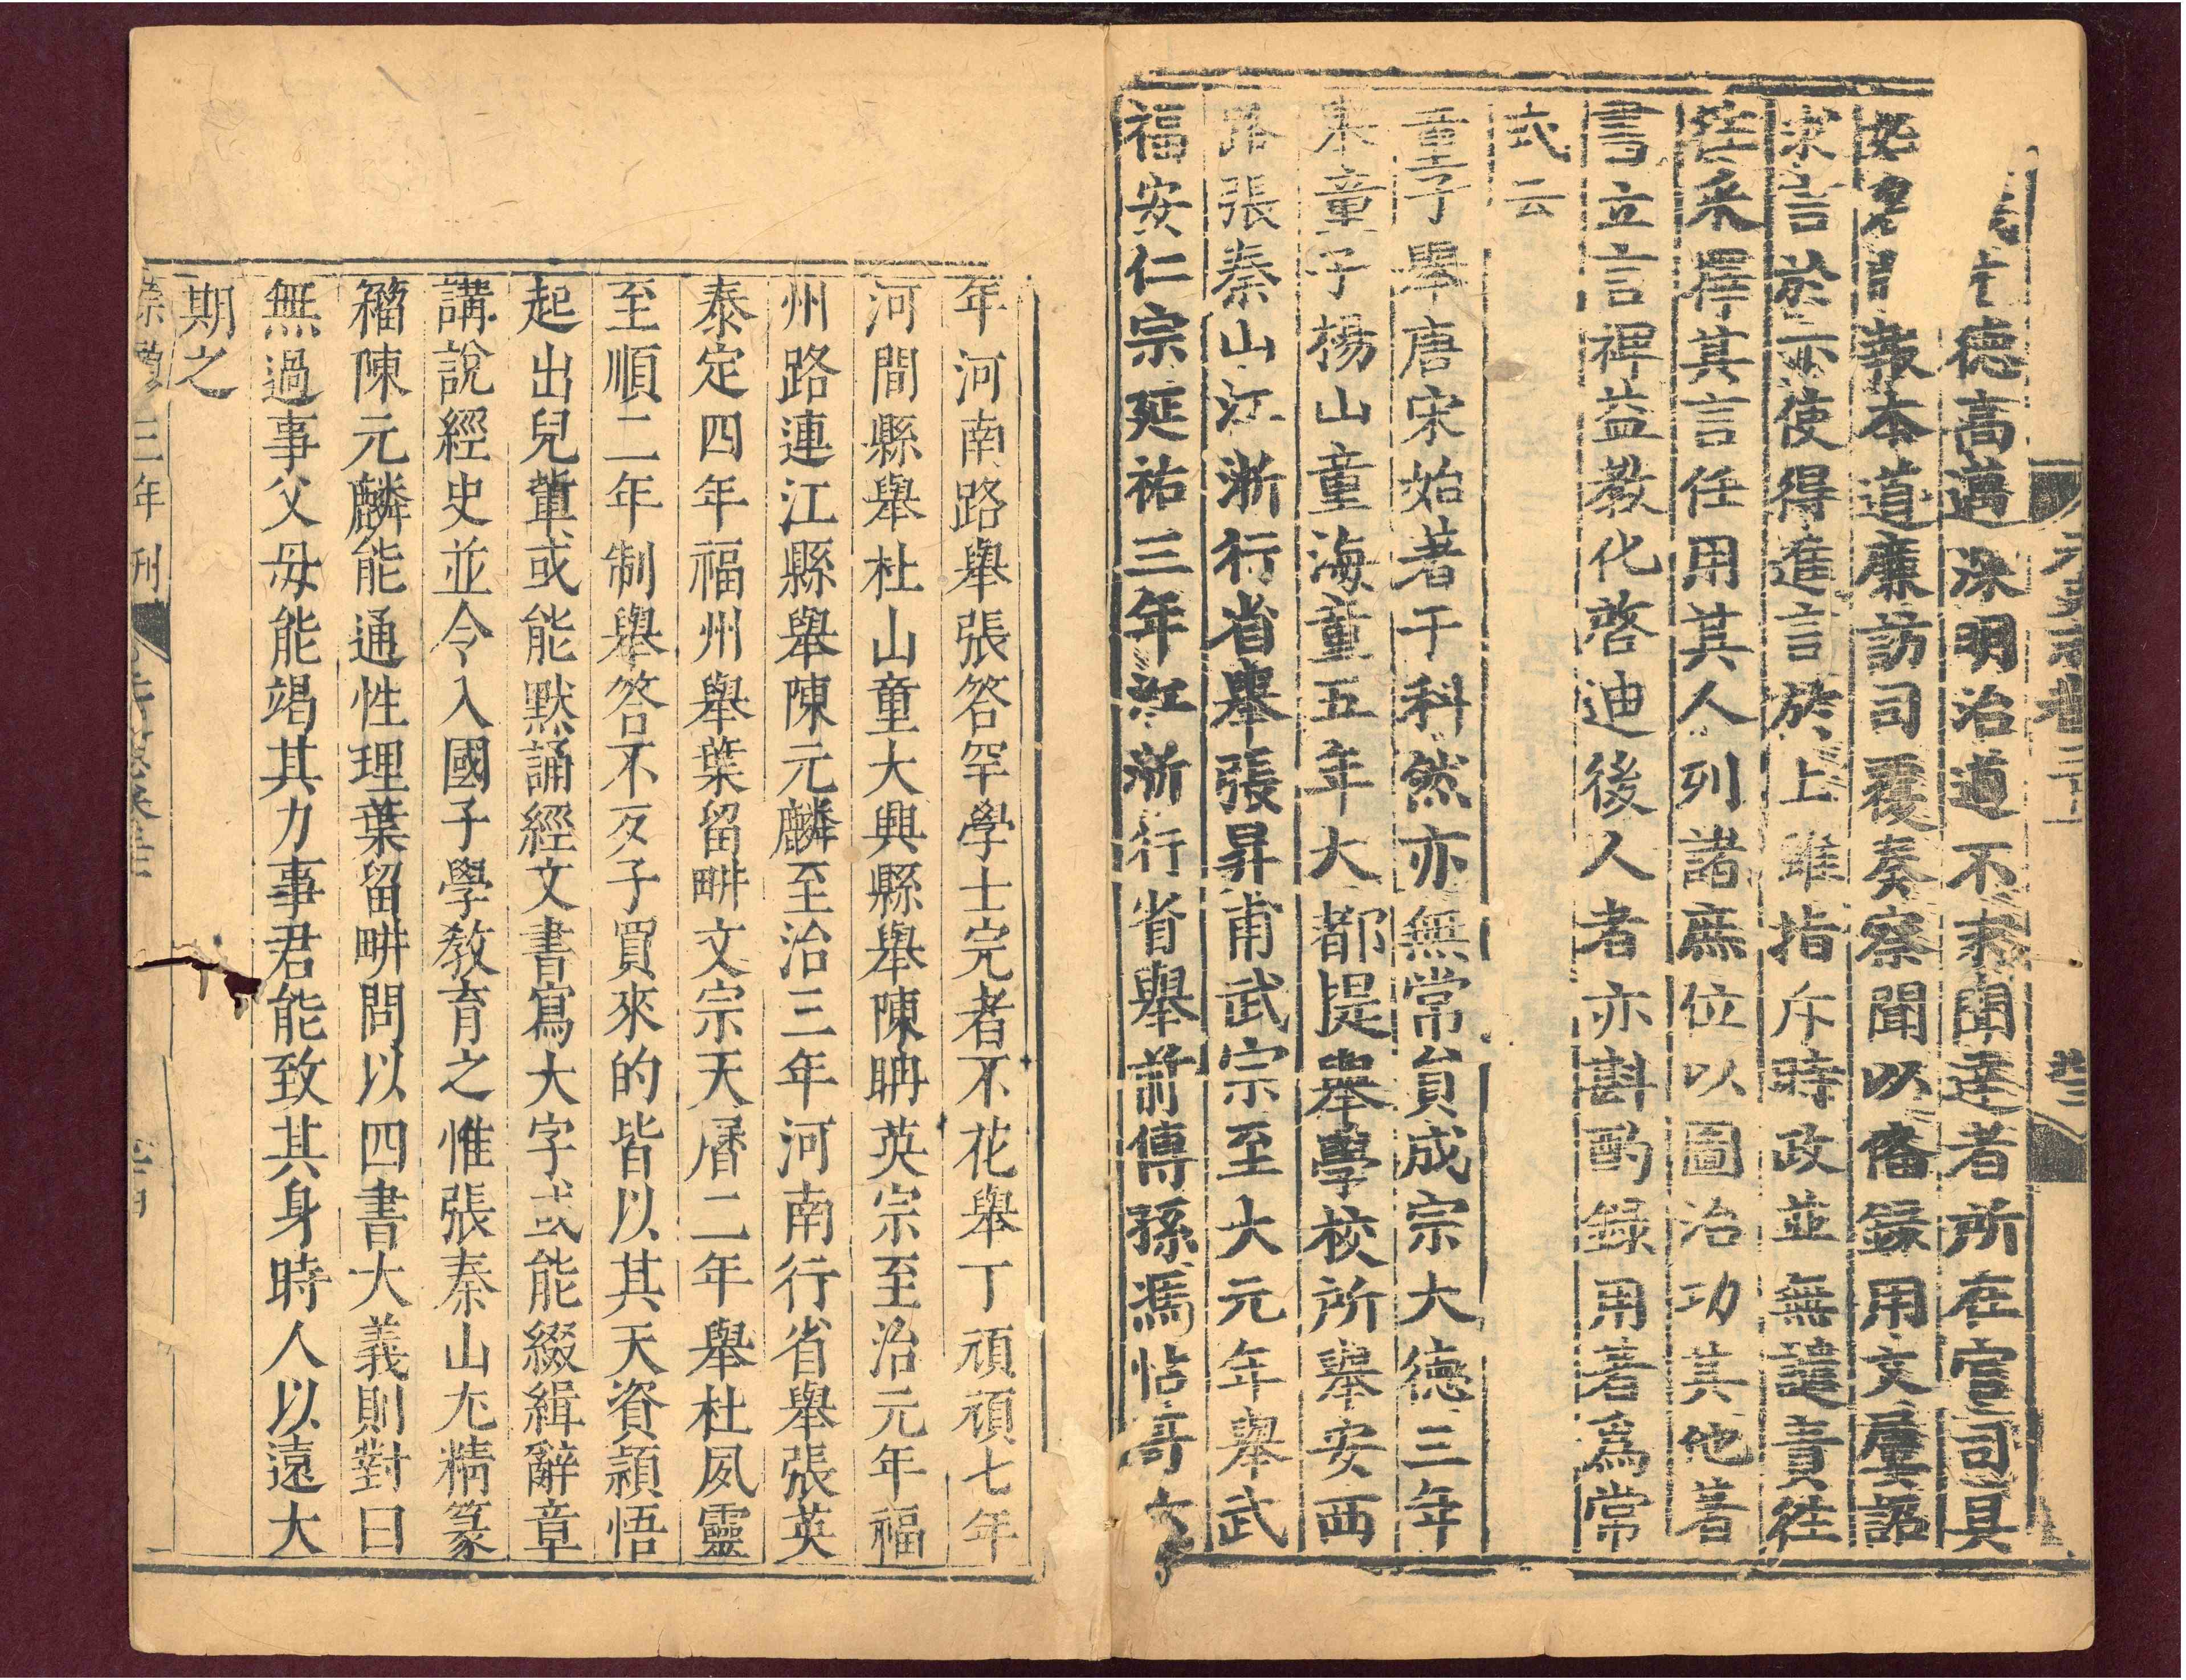 元史志卷三十一
卅三
德高邁深明治道不求聞達者所在官司具
姓名 報本道廉訪司覆奏察聞以備録用又屢詔
求言於下使得進言於上雖指斥時政並無譴責往
往采擇其言任用其人列諸庶位以圖治功其他著
書立言裨益教化啓迪後人者亦斟酌録用著爲常
式云
童子舉唐宋始著于科然亦無常員成宗大德三年
舉童子楊山童海童五年大都提舉學校所舉安西
路張秦山江浙行省舉張昇甫武宗至大元年舉武
福安仁宗延祐三年江浙行省舉前傳孫馮怙哥六
年河南路舉張答罕學士完者不花舉丁頑頑七年
河間縣舉杜山童大興縣舉陳聃英宗至治元年福
州路連江縣舉陳元麟至治三年河南行省舉張英
泰定四年福州舉葉留畊文宗天曆二年舉杜夙靈
至順二年制舉答不歹子買來的皆以其天資穎悟
起出兒輩或能默誦經文書寫大字或能綴緝辭章
講說經史並令入國子學教育之惟張秦山尤精篆
籀陳元麟能通性理葉留畊問以四書大義則對曰
無過事父母能竭其力事君能致其身時人以遠大
期之
三年刊